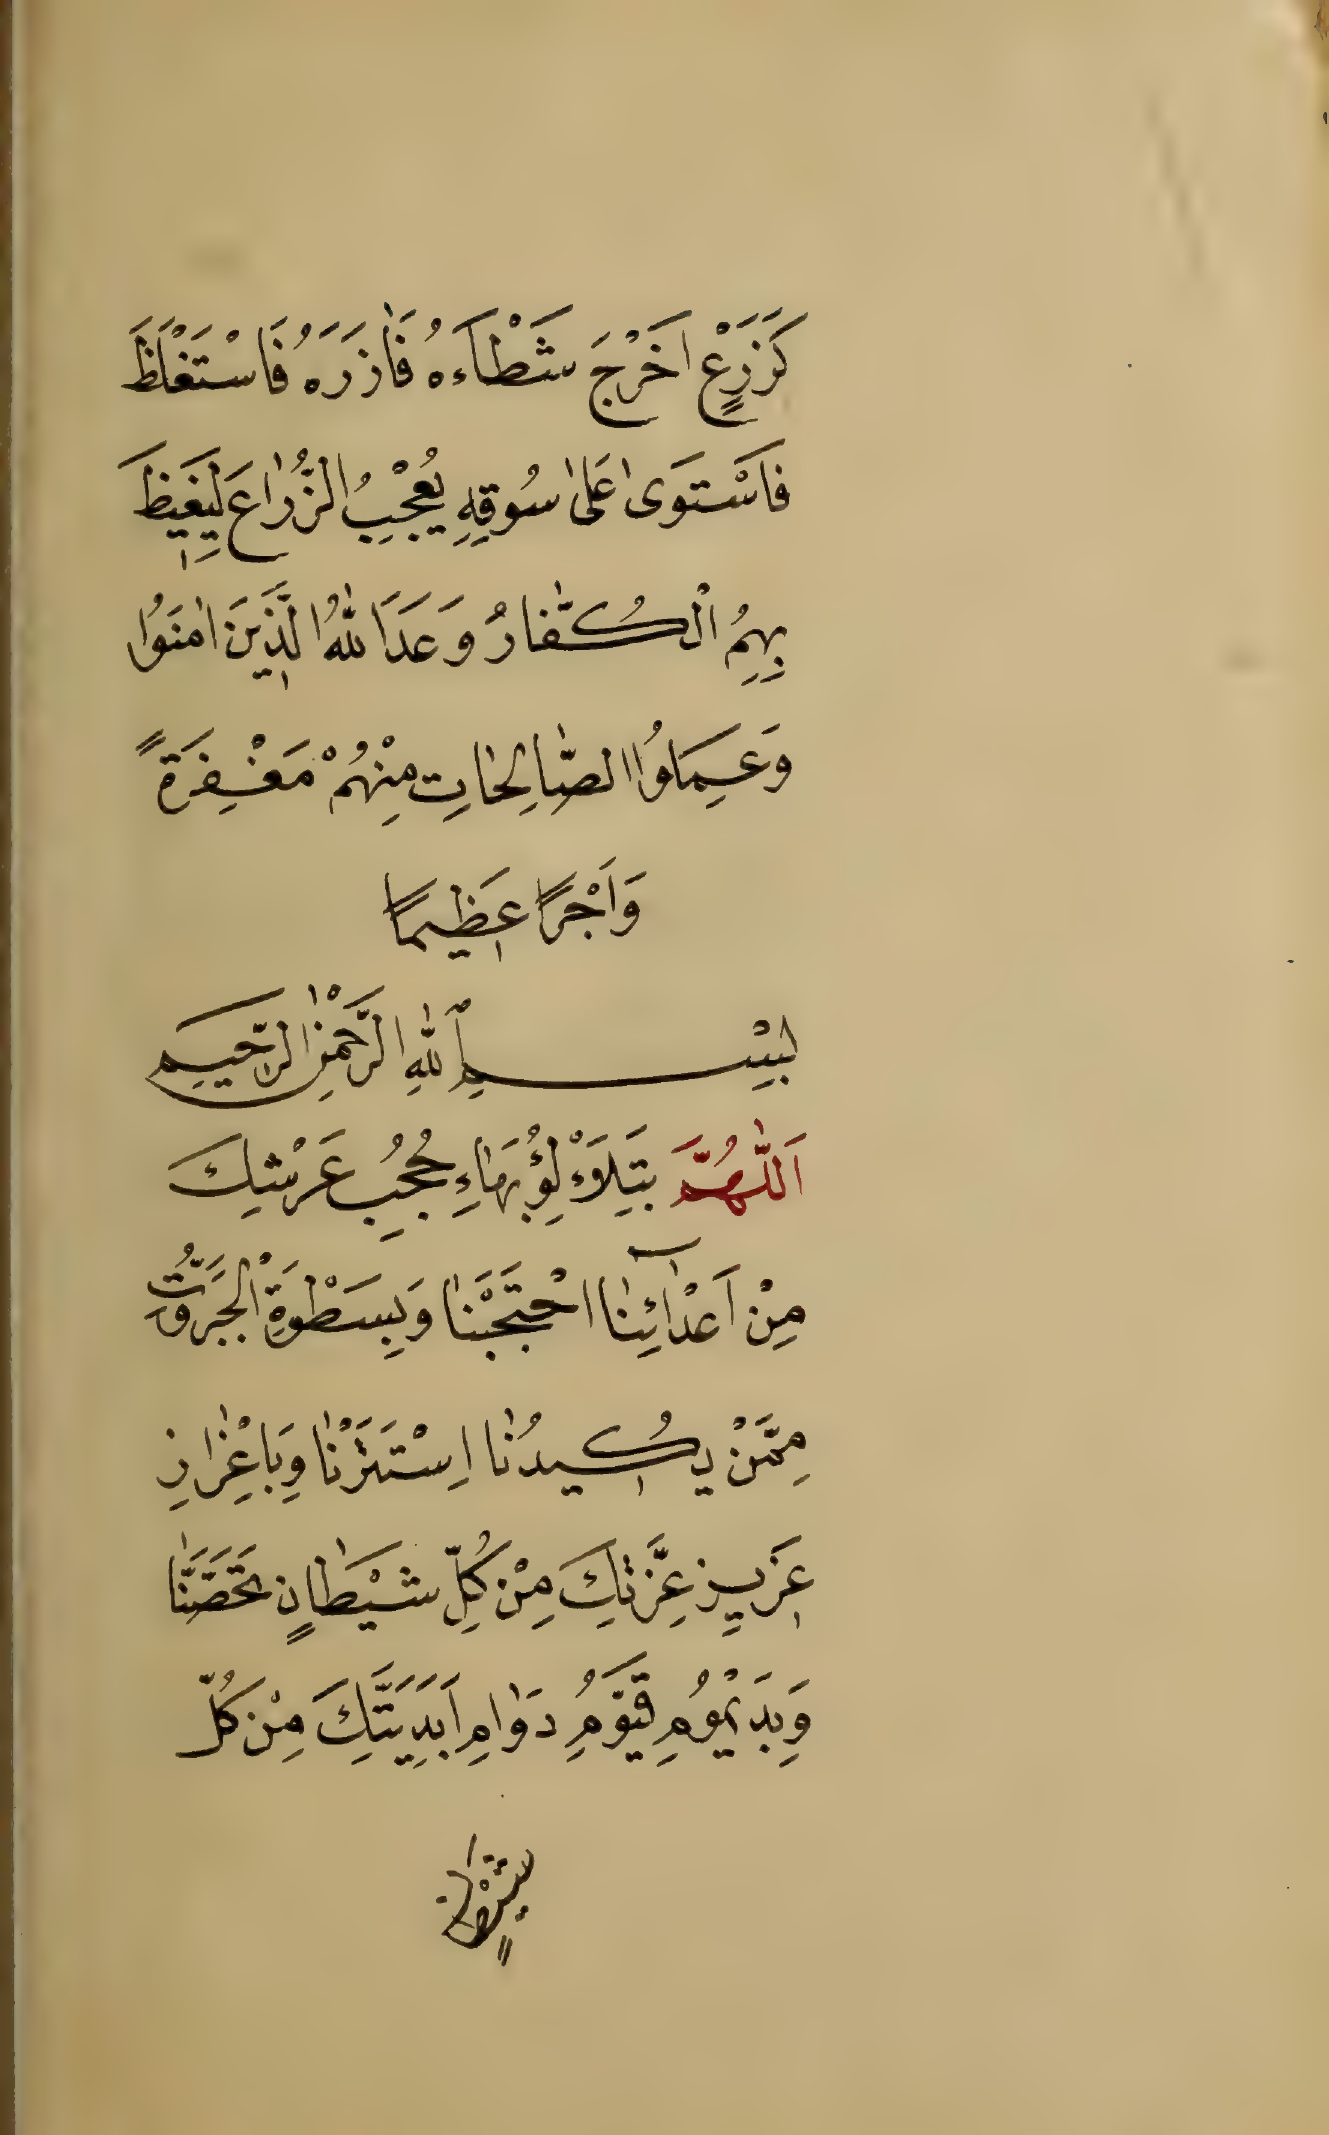 كَزَرْعٍ اَخْرَجَ شَطْاَءَهُ فَاٰزَرَهُ فَاسْتَغْلَظَ
فَاسْتَوىٰ عَلىٰ سُوقِهِ يُعْجِبُ الزُّرّٰاعَ لِيَغِيظَ
بِهِمُ الْكُفّٰارُ وَعَدَ اللّٰهُ الَّذٖينَ اٰمَنُوا
وَعَمِلُوا الصّٰالِحٰاتِ مِنْهُمْ مَغْفِرَةً
وَاَجْرًا عَظٖيمًا
بِسْمِ اللّٰهِ الرَّحْمٰنِ الرَّحِيمِ
اَللّٰهُمَّ بِتَلَاْءْلُؤِ بَهٰاءِ حُجُبِ عَرْشِكَ
مِنْ اَعْدٰٓائِنٰا احْتَجَبْنٰا وَبِسَطْوَةِ الْجَبَرُّوتِ
مِمَّنْ يَكٖيدُنٰا اِسْتَتَرْنٰا وَبِاعْزٰازِ
عَزٖيزِ عِزَّتِكَ مِنْ كُلِّ شَيْطٰانٍ تَحَصَّنّٰا
وَبِدَيْمُومِ قَيُّومِ دَوٰامِ اَبَدِيَّتِكَ مِنْ كُلِّ
شَيْطٰانٍ